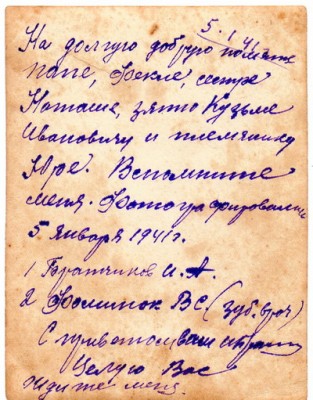 5. 1. 41
На долгую добрую память
папе, Фекле, сестре
Наташе, зятю Кузьме
Ивановичу и племяннику
Юре. Вспомните
меня. Фотографировались
5 января 1941 г.
1 Братчиков И. А.
2 Фомиток В С. (Зуб. врач)
С приветом Вам
Целую Вас
ждите меня.